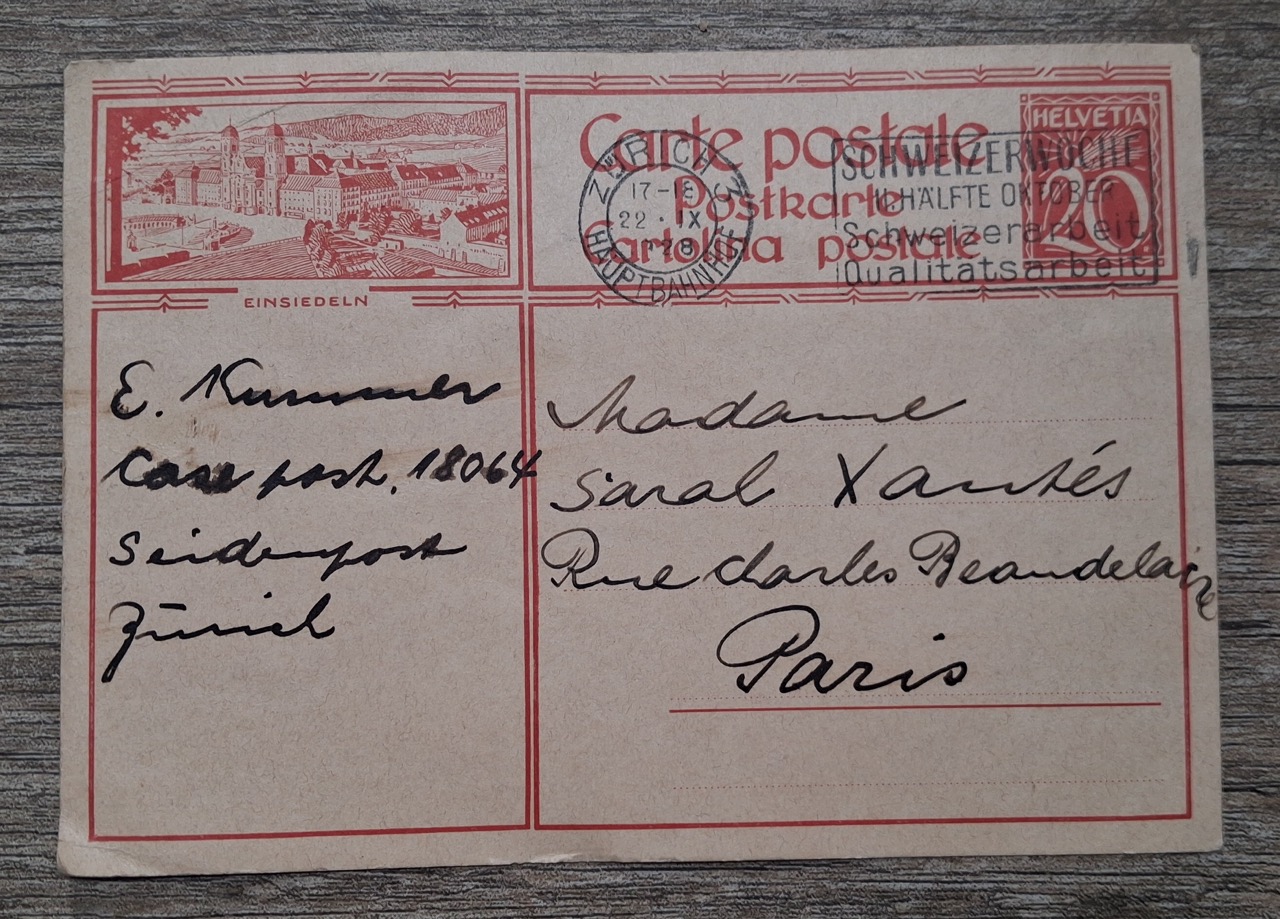 EINSIEDELN
Carte postale
Postkarte
Cartolina postale
HELVETIA
20
ZÜRICH 3
17-18
22 · IX
28
HAUPTBAHNHOF
SCHWEIZERWOCHE
II. HÄLFTE OKTOBER
Schweizerarbeit
Qualitätsarbeit
E. Kummer
Case post. 18064
Seidenpost
Zürich
Madame
Saral Xantés
Rue Charles Beaudelaire
Paris